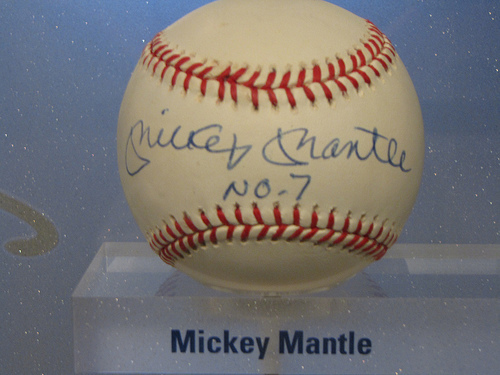 Mickey Mantle
NO. 7
Mickey Mantle